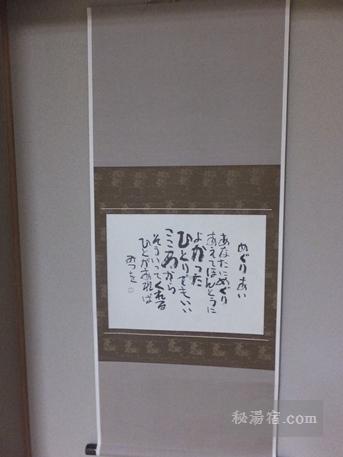 めぐりあい
あなたにめぐり
あえてほんとうに
よかった
ひとりでもいい
こころから
そういってくれる
ひとがあれば
みつを
秘湯宿.com